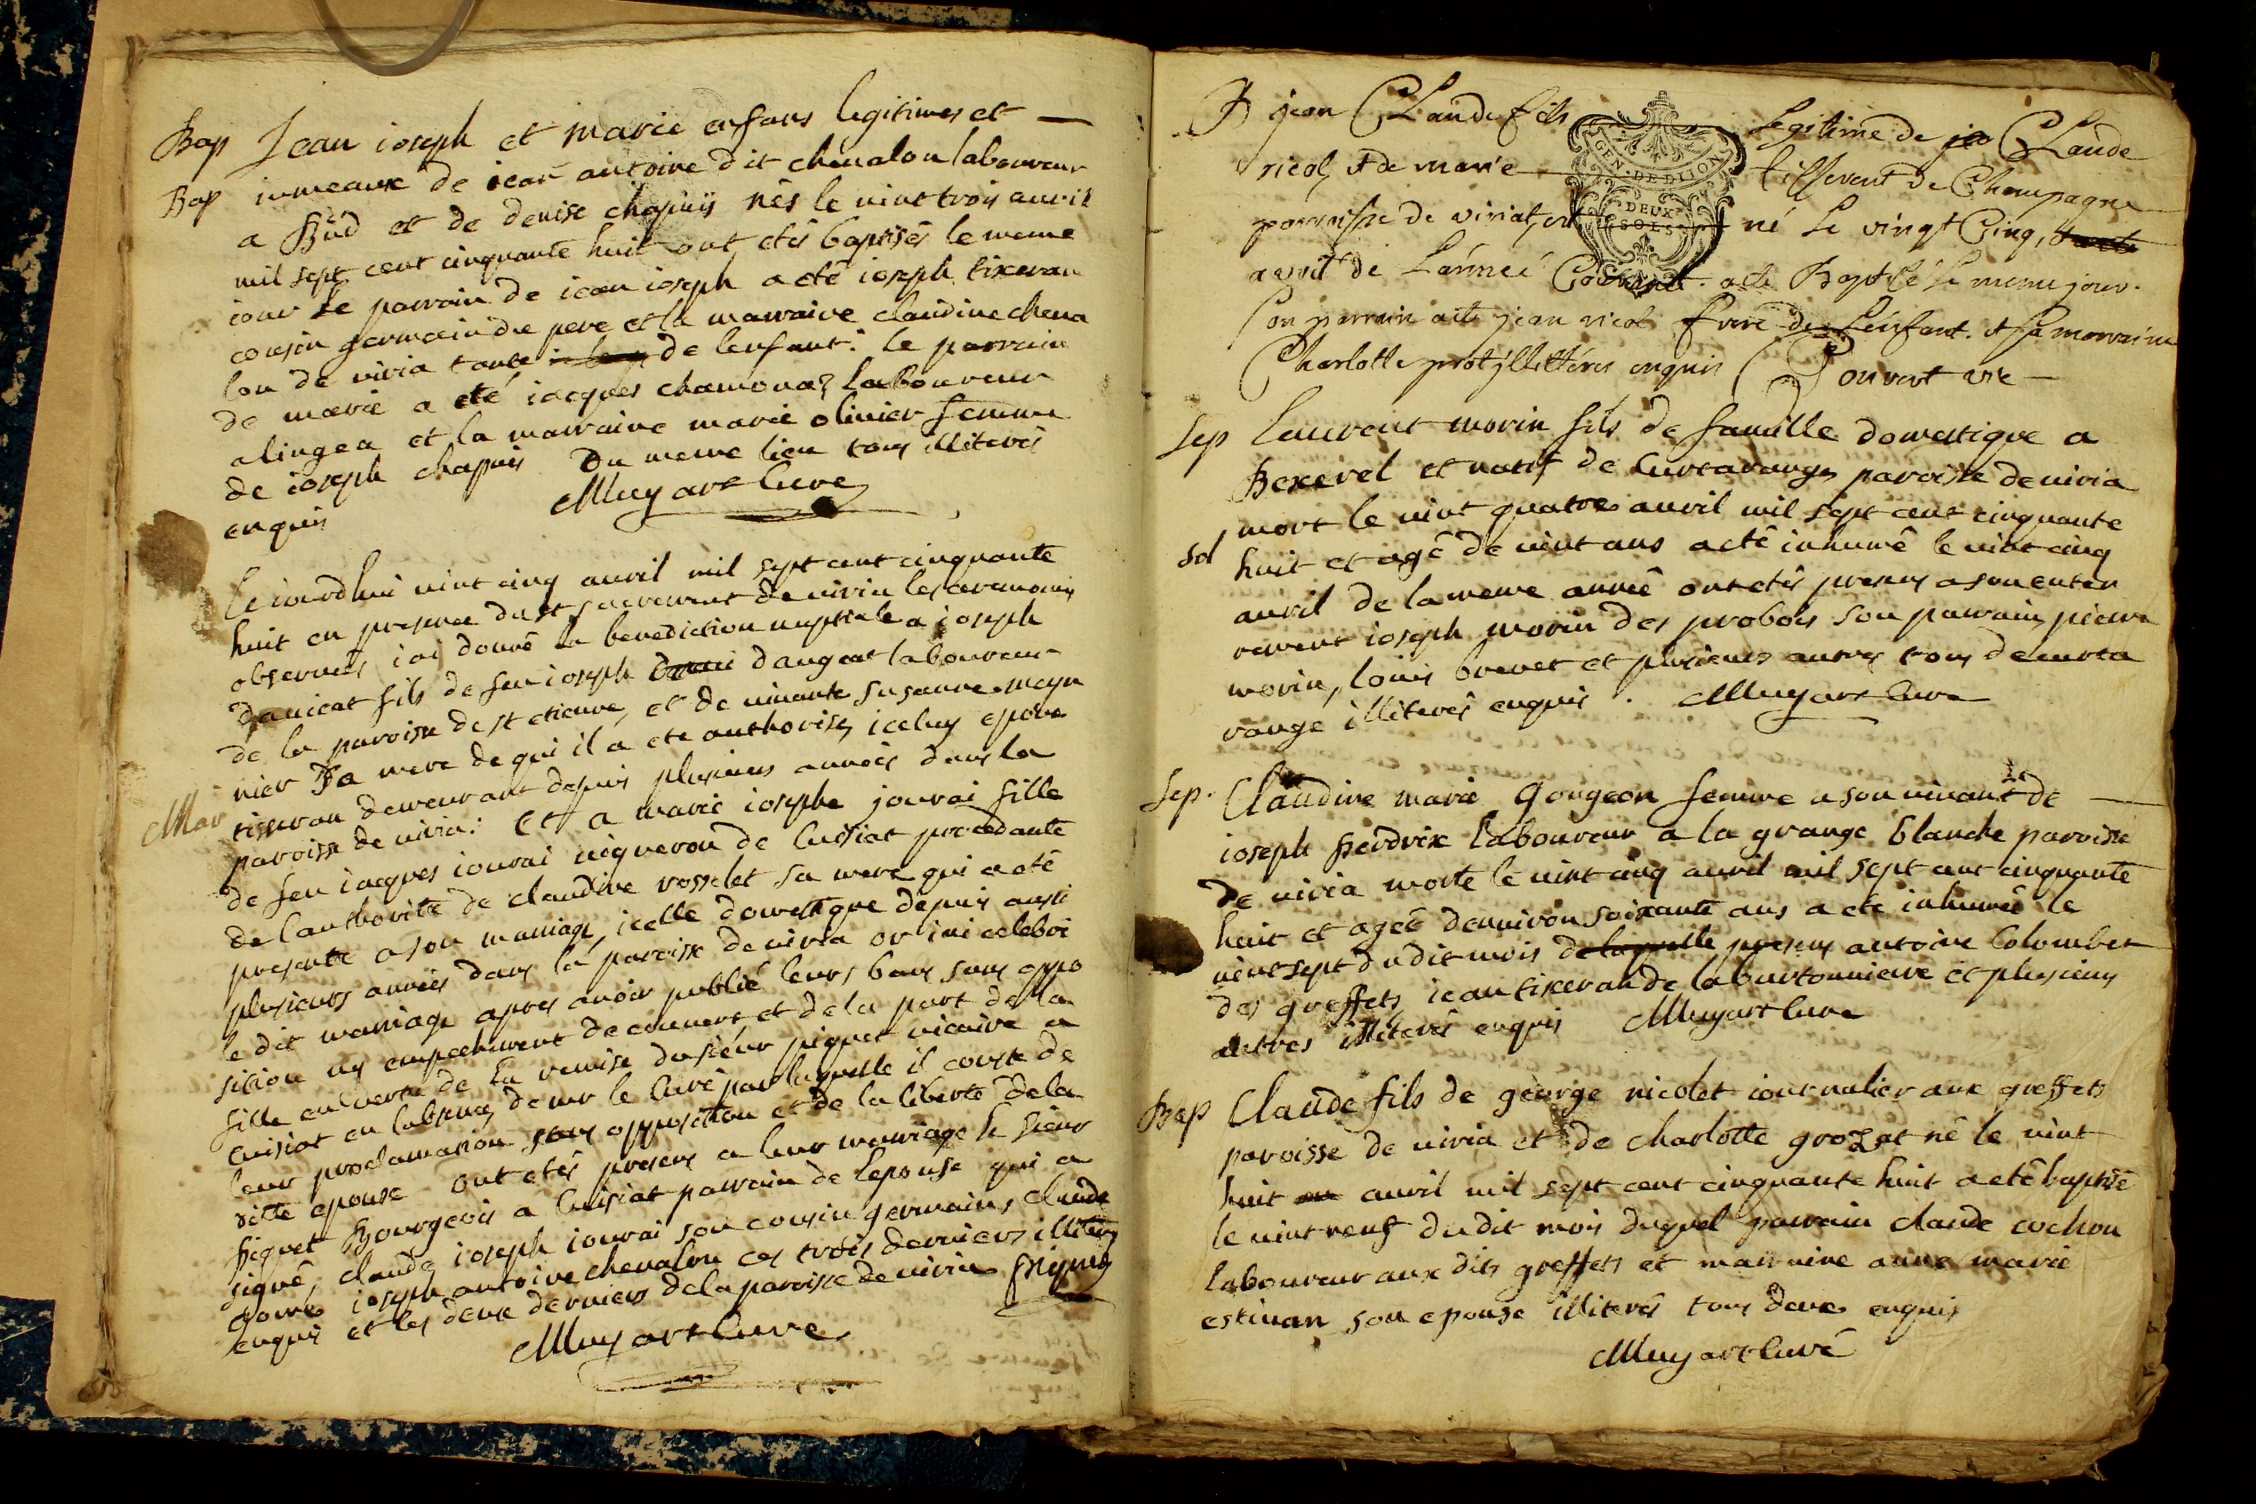 Bap Jean ioseph et marie enfans legitimes et
Bap iumeaux de iean antoine dit cheualon laboureur
a Bud et de denise chapuis nés le uint trois auril
mil sept cent cinquante huit ont etés baptisés le meme
iour Le parrain de iean ioseph a eté ioseph tixeran
cousin germain du pere et la marraine claudine cheua
lon de uiria tante de lenfant. le parrain
de marie a eté iacques chamonaz laboureur
a lingea et la marraine marie oliuier femme
de ioseph chapuis du meme lieu tous illiterés
enquis Muyart Curé
Ceiourdhui uint cinq auril mil sept cent cinquante
huit en presence du st sacrement de uiria les ceremonies
obseruées iai donné la benediction nuptiale a ioseph
dauicat fils de feu ioseph dangeat laboureur
de la paroisse de st etienne, et de uiuante susanne meyn
nier sa mere de qui il a ete authorisé, iceluy epoux
Mar tisseran demeurant depuis plusieurs années dans la
paroisse de uiria: Et a marie iosephe jouvai fille
de feu iacques iouvai uigneron de Cuisiat procedante
de lauthorité de claudine rosselet sa mere qui a eté
presente a son mariage, icelle domestique depuis aussi
plusieurs années dans la paroisse de uiria or iai celebré
le dit mariage apres auoir publié leurs bans sans oppo
sition ny empechement decouuert et de la part de la
fille en uertu de la remise du sieur piquet uicaire a
Cuisiat en labsence de mr le Curé par laquelle il conste de
leur proclamation sans opposition et de la liberté de la
ditte epouse ont etés presens a leur mariage le sieur
piquet Bourgeois a Cuisiat parrain de lepouse qui a
signé, claude ioseph iouvai son cousin germain, claude
ioseph antoine cheualon ces trois derniers illiterés
enquis et les deux derniers de la paroisse de uiria piquet
Muyart Curé
B jean Claude fils legitime de Claude
nicol et de marie tisserant de Champagne
parroisse de viriat, est né Le vingt Cinq,
avril de L'année Courante. a ete Baptisé Le meme jour.
Son parrain a ete jean nicol frere de L'enfant. et sa marraine
Charlotte prot illitteres enquis
GEN. DE DIJON
DEUX SOLS
Sep Laurent morin fils de famille domestique a
Bexerel et natif de Curtaranges paroisse de uiria
mort le uint quatre auril mil sept cent cinquante
sd huit et agé de uint ans a eté inhumé le uint cinq
auril de la meme année ont etés presens a son enter
rement ioseph morin des probois son parrain, pierre
morin, louis breuet et plusieurs autres tous de curta
range illiterés enquis. Muyart Curé
Sep. Claudine marie Gongeon femme a son uiuant de
ioseph Perdrix laboureur a la grange blanche paroisse
de uiria morte le uint cinq auril mil sept cent cinquante
huit et ageé denuiron soixante ans a ete inhumée le
uint sept du dit mois presens antoine Colombet
des greffets iean tixeran de la burtonniere et plusieurs
autres illiterés enquis Muyart Curé
Bap Claude fils de george nicolet iournalier aux greffets
paroisse de uiria et de charlotte grozat né le uint
huit auril mil sept cent cinquante huit a eté baptisé
le uint neuf du dit mois duquel parrain claude cochon
laboureur aux dits greffets et marraine anne marie
estiuan son epouse illiterés tous deux enquis
Muyart Curé